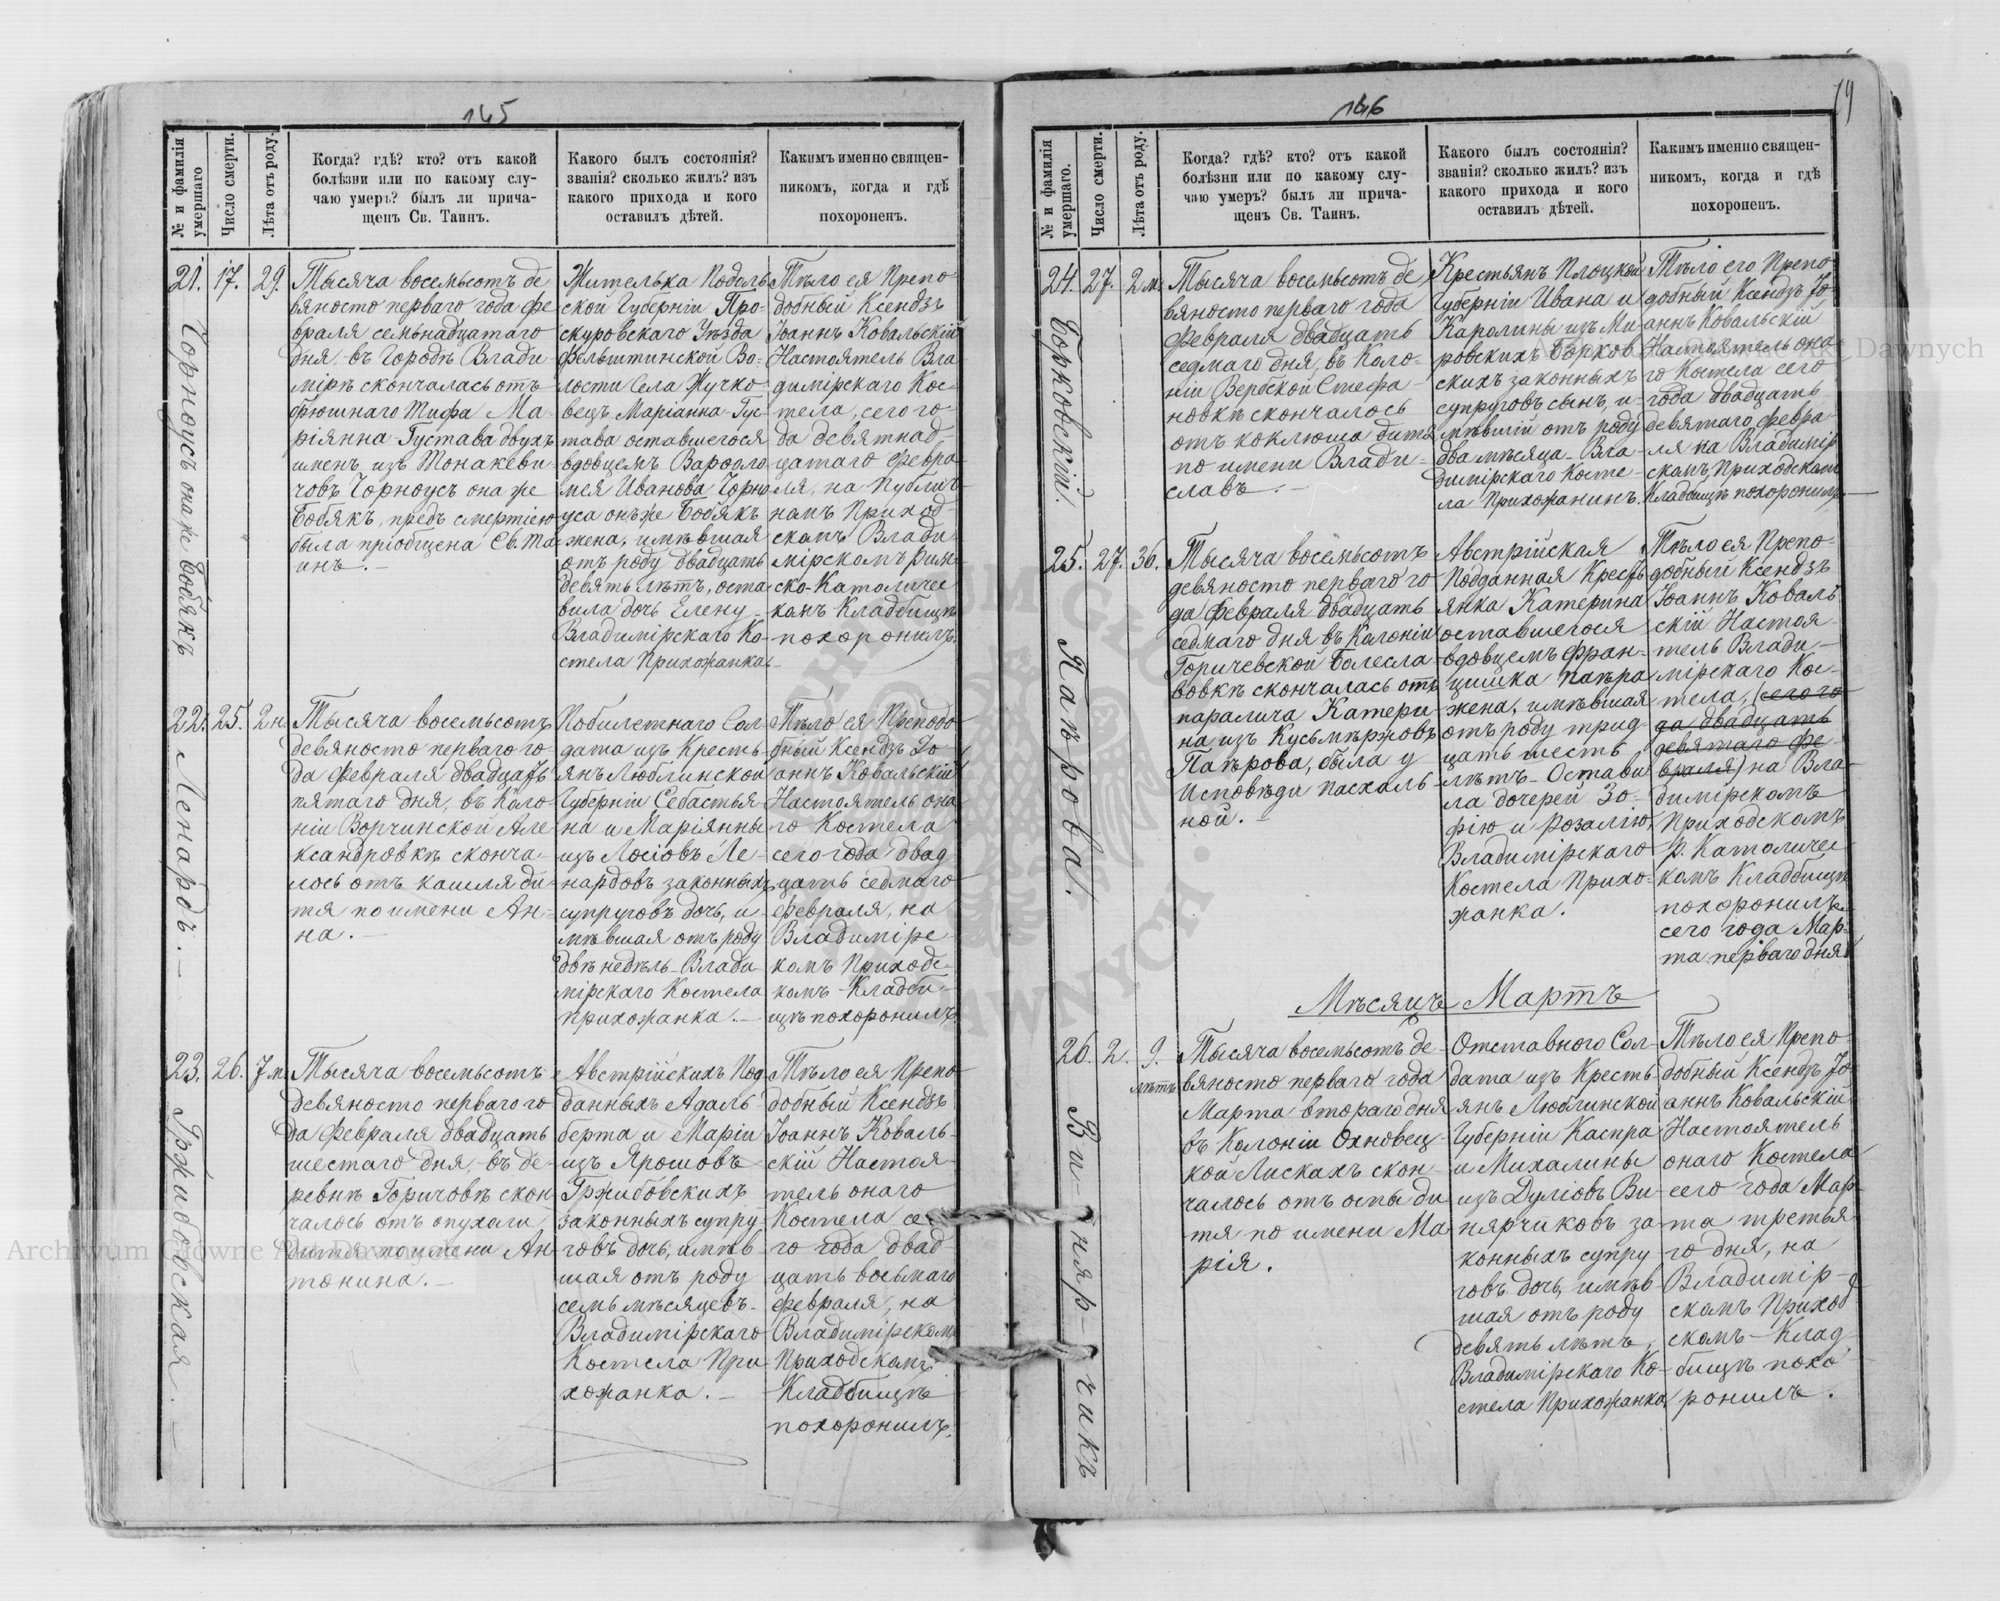 145
№ и фамилія умершаго
Число смерти.
Лѣта отъ роду.
Когда? гдѣ? кто? отъ какой
болѣзни или по какому слу-
чаю умеръ? былъ ли прича-
щенъ Св. Таинъ.
Какого былъ состоянія?
званія? сколько жилъ? изъ
какого прихода и кого
оставилъ дѣтей.
Какимъ именно священ-
никомъ, когда и гдѣ
похороненъ.
21.
17.
29.
Чорноусъ она же Бобякъ
Тысяча восемьсотъ де
вяносто перваго года фе
враля семьнадцатаго
дня въ Городѣ Влади
мірѣ скончалась отъ
брюшнаго тифа Ма-
ріянна Густава двухъ
именъ изъ Тонакеви
човъ Чорноусъ она же
Бобякъ, предъ смертію
была пріобщена Св. Та
инъ.—
Жителька Подоль
ской Губерніи Про-
скуровскаго Уѣзда
Фельштинской Во-
лости Села Жучко-
вецъ Маріанна-Гус
тава оставшегося
вдовцемъ Варѳоло
мея Иванова Чорно
уса онъ же Бобякъ
жена, имѣвшая
отъ роду двадцать
девять лѣтъ, оста
вила дочь Елену
Владимірскаго Ко-
стела Прихожанка.
Тѣло ея Препо
добный Ксендзъ
Іоаннъ Ковальскій
Настоятель Вла
димірскаго Кос
тела, сего го-
да девятнад
цатаго Февра-
ля, на Публич
номъ Приход-
скомъ Влади
мірскомъ Рим-
ско-Католичес
комъ Кладбищѣ
похоронилъ.
22.
25.
2 н.
Ленардъ.—
Тысяча восемьсотъ
девяносто перваго го-
да Февраля двадцать
пятаго дня, въ Коло-
ніи Ворчинской Але
ксандровкѣ сконча-
лось отъ кашля ди-
тя по имени Ан-
на.—
Побилетнаго Сол-
дата изъ Кресть-
янъ Люблинской
Губерніи Себастья
на и Маріянны
изъ Лосіовъ Ле-
нардовъ законныхъ
супруговъ дочь, и-
мѣвшая отъ роду
двѣ недѣль-Влади
мірскаго Костела
прихожанка.—
Тѣло ея Преподо
бный Ксендзъ Іо
аннъ Ковальскій
Настоятель она
го Костела
сего года двад
цать седмаго
Февраля, на
Владимірс
комъ Приходс-
комъ-Кладби-
щѣ похоронилъ.
23.
26.
7 м.
Гржибовская.—
Тысяча восемьсотъ
девяносто перваго го
да Февраля двадцать
шестаго дня,-въ де-
ревнѣ Горичовѣ скон
чалось отъ опухоли
дитя по имени Ан
тонина.—
Австрійскихъ Под
данныхъ Адаль-
берта и Маріи
изъ Ярошовъ
Гржибовскихъ
законныхъ супру
говъ дочь, имѣв
шая отъ роду
семь мѣсяцевъ-
Владимірскаго
Костела При
хожанка.—
Тѣло ея Препо-
добный Ксендзъ
Іоаннъ Коваль-
скій Настоя-
тель онаго
Костела се
го года двад
цать восьмаго
Февраля, на
Владимірскомъ
Приходскомъ
Кладбищѣ
похоронилъ.
146
19
№ и фамилія умершаго.
Число смерти.
Лѣта отъ роду.
Когда? гдѣ? кто? отъ какой
болѣзни или по какому слу-
чаю умеръ? былъ ли прича-
щенъ Св. Таинъ.
Какого былъ состоянія?
званія? сколько жилъ? изъ
какого прихода и кого
оставилъ дѣтей.
Какимъ именно священ-
никомъ, когда и гдѣ
похороненъ.
24.
27.
2 м.
Борковскій.
Тысяча восемьсотъ де
вяносто перваго года
Февраля двадцать
седмаго дня, въ Коло-
ніи Вербской Стефа
новкѣ скончалось
отъ коклюша дитя
по имени Влади-
славъ.—
Крестьянъ Плоцкой
Губерніи Ивана и
Каролины изъ Ми
ровскихъ Борков
скихъ законныхъ
супруговъ сынъ, и-
мѣвшій отъ роду
два мѣсяца-Вла-
димірскаго Косте-
ла Прихожанинъ.
Тѣло его Препо-
добный Ксендзъ Іо-
аннъ Ковальскій
Настоятель она
го Костела сего
года двадцать
девятаго Февра-
ля на Владимір
скомъ Приходскомъ
Кладбищѣ похоронилъ—
25.
27.
36.
Папрова.
Тысяча восемьсотъ
девяносто перваго го
да Февраля двадцать
седмаго дня въ Колоніи
Горичевской Болесла
вовкѣ скончалась отъ
паралича Катери
на изъ Кусьмѣржовъ
Папрова, была у
Исповѣди пасхаль
ной.—
Австрійская
Подданная Кресть
янка Катерина
оставшегося
вдовцемъ Фран-
цишка Папра
жена, имѣвшая
отъ роду трид
цать шесть
лѣтъ-Остави
ла дочерей Зо-
фію и Розалію
Владимірскаго
Костела Прихо-
жанка.
Тѣло ея Препо-
добный Ксендзъ
Іоаннъ Коваль
скій Настоя-
тель Влади-
мірскаго Кос-
тела, (сего го
да двадцать
девятаго Фе
враля) на Вла-
димірскомъ
Приходскомъ
Р. Католичес
комъ Кладбищѣ
похоронилъ
сего года Мар-
та перваго дня
Мѣсяцъ Мартъ
26.
2.
9.
лѣтъ
Винярчикъ
Тысяча восемьсотъ де-
вяносто перваго года
Марта втораго дня
въ Колоніи Охновец-
кой Ласкахъ скон-
чалось отъ оспы ди
тя по имени Ма
рія.
Отставного Сол-
дата изъ Кресть-
янъ Люблинской
Губерніи Каспра
и Михалины
изъ Дуліовъ Ви-
нярчиковъ за-
конныхъ супру
говъ дочь, имѣв
шая отъ роду
девять лѣтъ,
Владимірскаго Ко-
стела Прихожанка
Тѣло ея Препо-
добный Ксендзъ Іо
аннъ Ковальскій
Настоятель
онаго Костела
сего года Мар-
та третья
го дня, на
Владимір-
скомъ Приход
скомъ-Клад
бищѣ похо
ронилъ.
Archiwum Główne Akt Dawnych